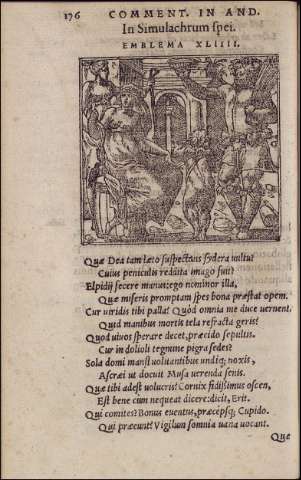 176 COMMENT. IN AND.
In Simulachrum ſpei.
EMBLEMA XLIIII.
Quæ Dea tam læto ſuſpectans ſydera vultu?
Cuius peniculis reddita imago fuit?
Elpidij fecere manus. ego nominor illa,
Quæ miſeris promptam ſpes bona præſtat opem.
Cur viridis tibi palla? Quòd omnia me duce vernent.
Quid manibus mortis tela refracta geris?
Quod viuos ſperare decet, præcido ſepultis.
Cur in dolioli tegmine pigra ſedes?
Sola domi manſi volitantibus vndiq; noxis,
Aſcræi ut docuit Muſa verenda ſenis.
Quæ tibi adeſt volucris? Cornix fidiſſimus oſcen,
Eſt bene cùm nequeat dicere: dicit, Erit.
Qui comites? Bonus euentus, præcepſq; Cupido.
Qui præeunt? Vigilum ſomnia vana vocant.
Quæ